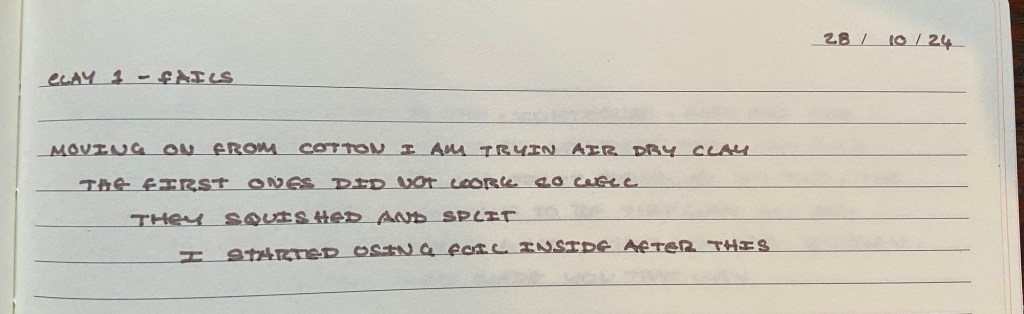 28 / 10 / 24
CLAY 1 - FAILS
MOVING ON FROM COTTON I AM TRYIN AIR DRY CLAY
THE FIRST ONES DID NOT WORK SO WELL
THEY SQUISHED AND SPLIT
I STARTED USING FOIL INSIDE AFTER THIS